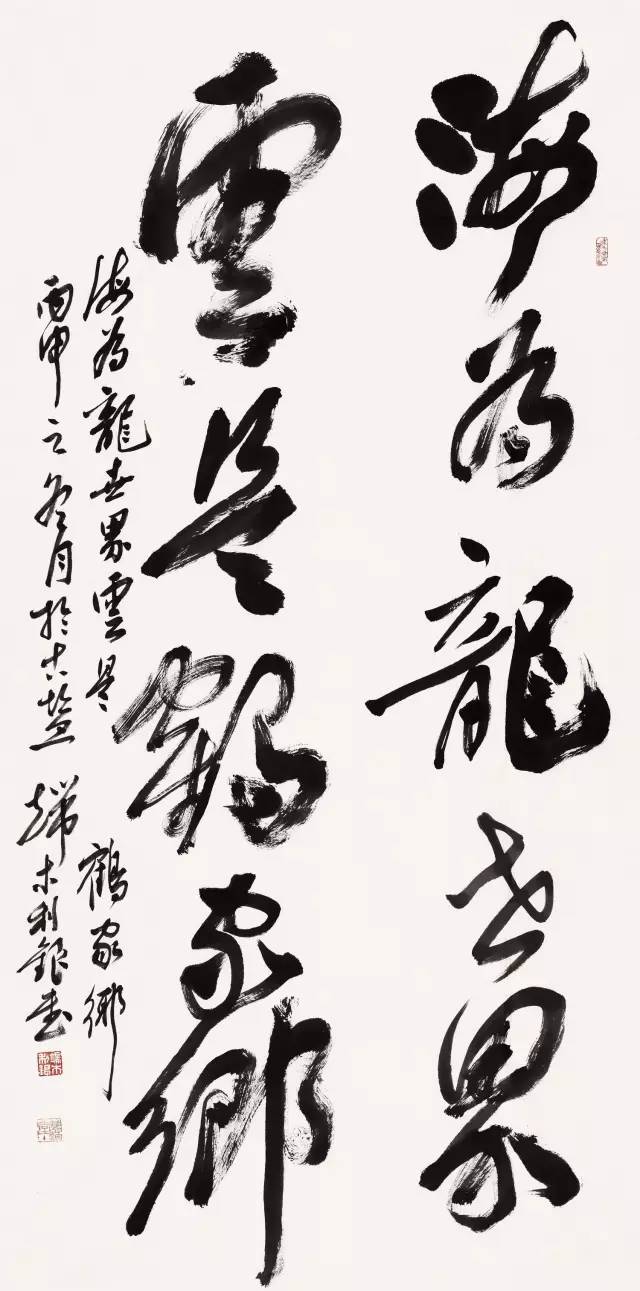 海為龍世界
雲是鶴家鄉
海為龍世界雲是鶴家鄉
丙申之冬月於古盐端木利銀書